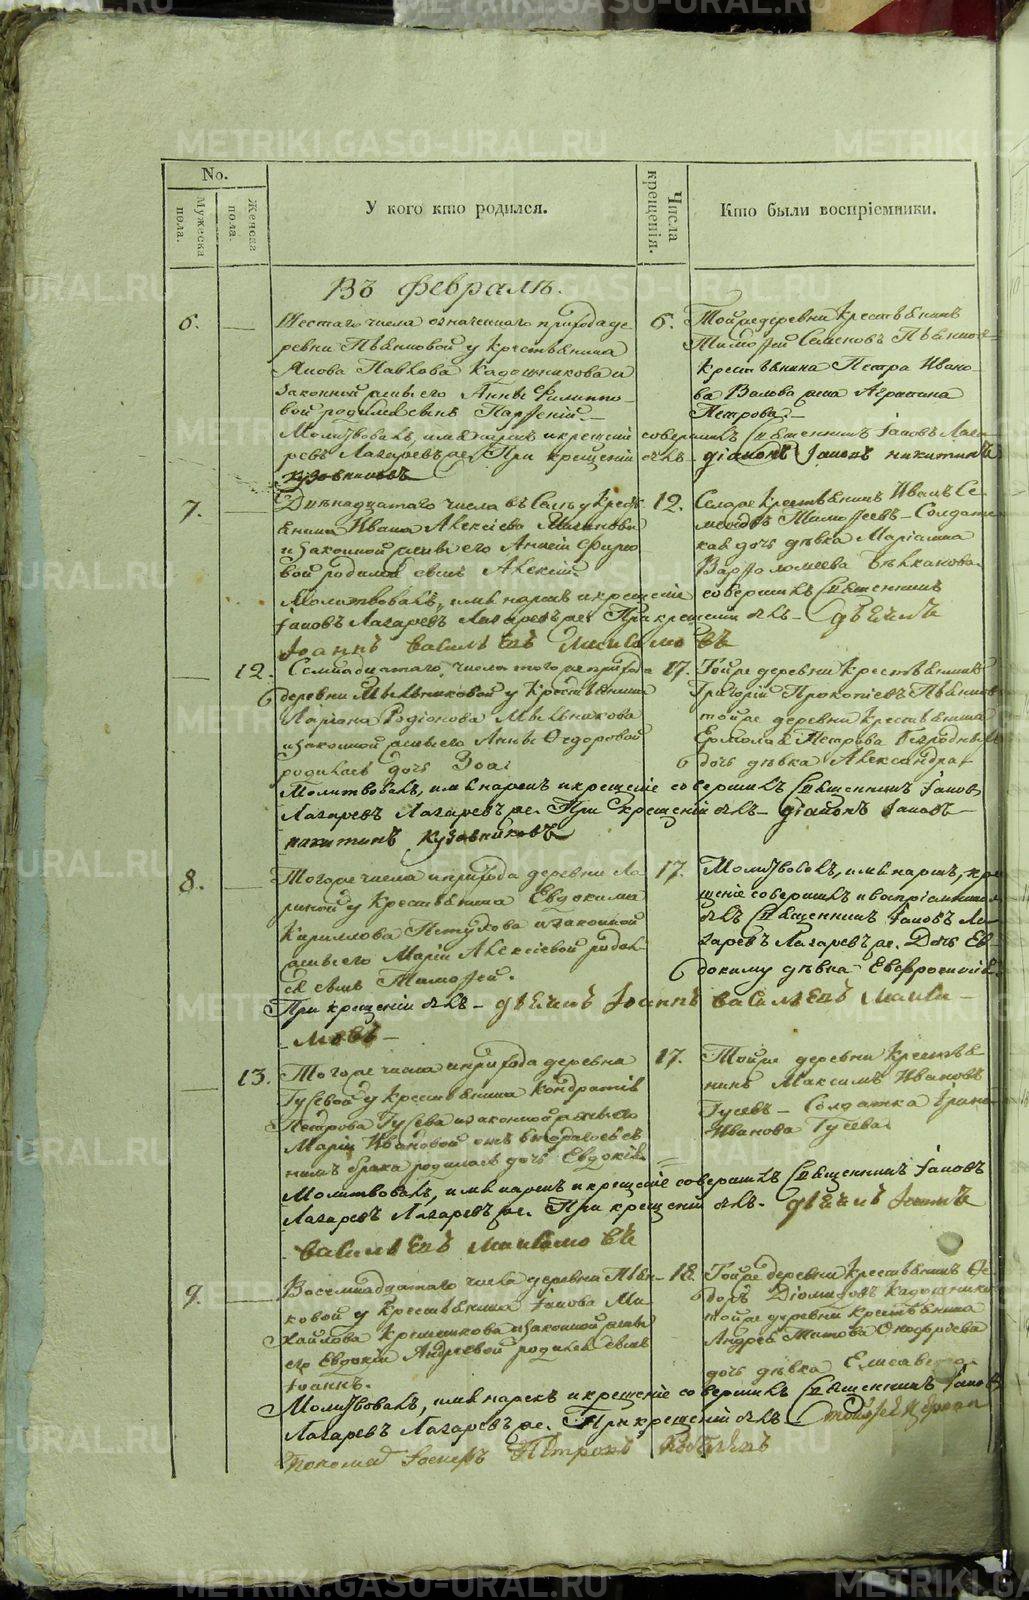 No.
Мужеска пола.
Женска пола.
У кого кто родился.
Числа крещенія.
Кто были воспріемники.
Въ февралѣ.
6.
Шестаго числа означеннаго прихода де-
ревни Пьянковой у крестьянина
Якова Павлова Кадошникова и
законной жены его Анны Филиппо-
вой родился сынъ Парѳеній.
6.
Той же деревни крестьянинъ
Тимоѳей Семеновъ Пьянков
крестьянина Петра Ивано-
ва жена Агрипина
Петрова.
Молитвовалъ, имя нарекъ и крещеніе совершилъ Священникъ Іаковъ Лаза-
ревъ Лазаревъ же. При крещеніи былъ діаконъ Іаковъ Никитинъ
Кузовниковъ
7.
Двенадцатаго числа въ Селѣ у Кресть-
янина Ивана Алексіева
и законной жены его
вой родился сынъ Алексій.
12.
Селаже Крестьянинъ Иванъ Се-
Тимоѳеевъ Солдатс-
кая дочь дѣвка Маріамна
Варѳоломеева
Молитвовалъ, имя нарекъ и крещеніе совершилъ Священникъ
Іаковъ Лазаревъ Лазаревъ же. При крещеніи былъ дьячекъ
Іоаннъ Васильевъ
12.
Семнадцатаго числа того же прихода
деревни Мыльниковой у Крестьянина
Иларіона Родіонова Мыльникова
и законной жены его Анны Ѳедоровой
родилась дочь Зоя.
17.
Тойже деревни Крестьянинъ
Григорій Прокопіевъ Пьянков
тойже деревни крестьянина
Ермолая Петрова
дочь дѣвка Александра
Молитвовалъ, имя нарекъ и крещеніе совершилъ Священникъ Іаковъ
Лазаревъ Лазаревъ же. При крещеніи былъ діаконъ Іаковъ
Никитинъ Кузовниковъ
8.
Тогоже числа и прихода деревни
у Крестьянина Евдокима
Кириллова Петухова и законной
жены его Маріи Алексіевой родил-
ся сынъ Тимоѳей.
17.
Молитвовалъ, имя нарекъ, кре-
щеніе совершилъ и воспріемникомъ
былъ Священникъ Іаковъ Ла-
заревъ Лазаревъ же. Дочь Ев-
докиму дѣвка Евфросинія
При крещеніи былъ дьячекъ Іоаннъ Васильевъ
13.
Тогоже числа и прихода деревни
Гусевой у Крестьянина Кондратія
Петрова Гусева и законной жены его
Маріи Ивановой
брака родилась дочь Евдокія.
17.
Тойже деревни Крестья-
нинъ Максимъ Ивановъ
Гусевъ Солдатка Ирина
Иванова Гусева.
Молитвовалъ, имя нарекъ и крещеніе совершилъ Священникъ Іаковъ
Лазаревъ Лазаревъ же. При крещеніи былъ дьячекъ Іоаннъ
Васильевъ
9.
Восемнадцатаго числа деревни Пьян-
ковой у Крестьянина Іакова Ми-
хайлова и законной жены
его Евдокіи Андреевой родился сынъ
Іоаннъ.
18.
Тойже деревни Крестьянинъ Ѳе-
доръ Діомидовъ Кадошник
тойже деревни крестьянина
Андрея Титова
дочь дѣвка Елисавета
Молитвовалъ, имя нарекъ и крещеніе совершилъ Священникъ Іаковъ
Лазаревъ Лазаревъ же. При крещеніи былъ
METRIKI.GASO-URAL.RU